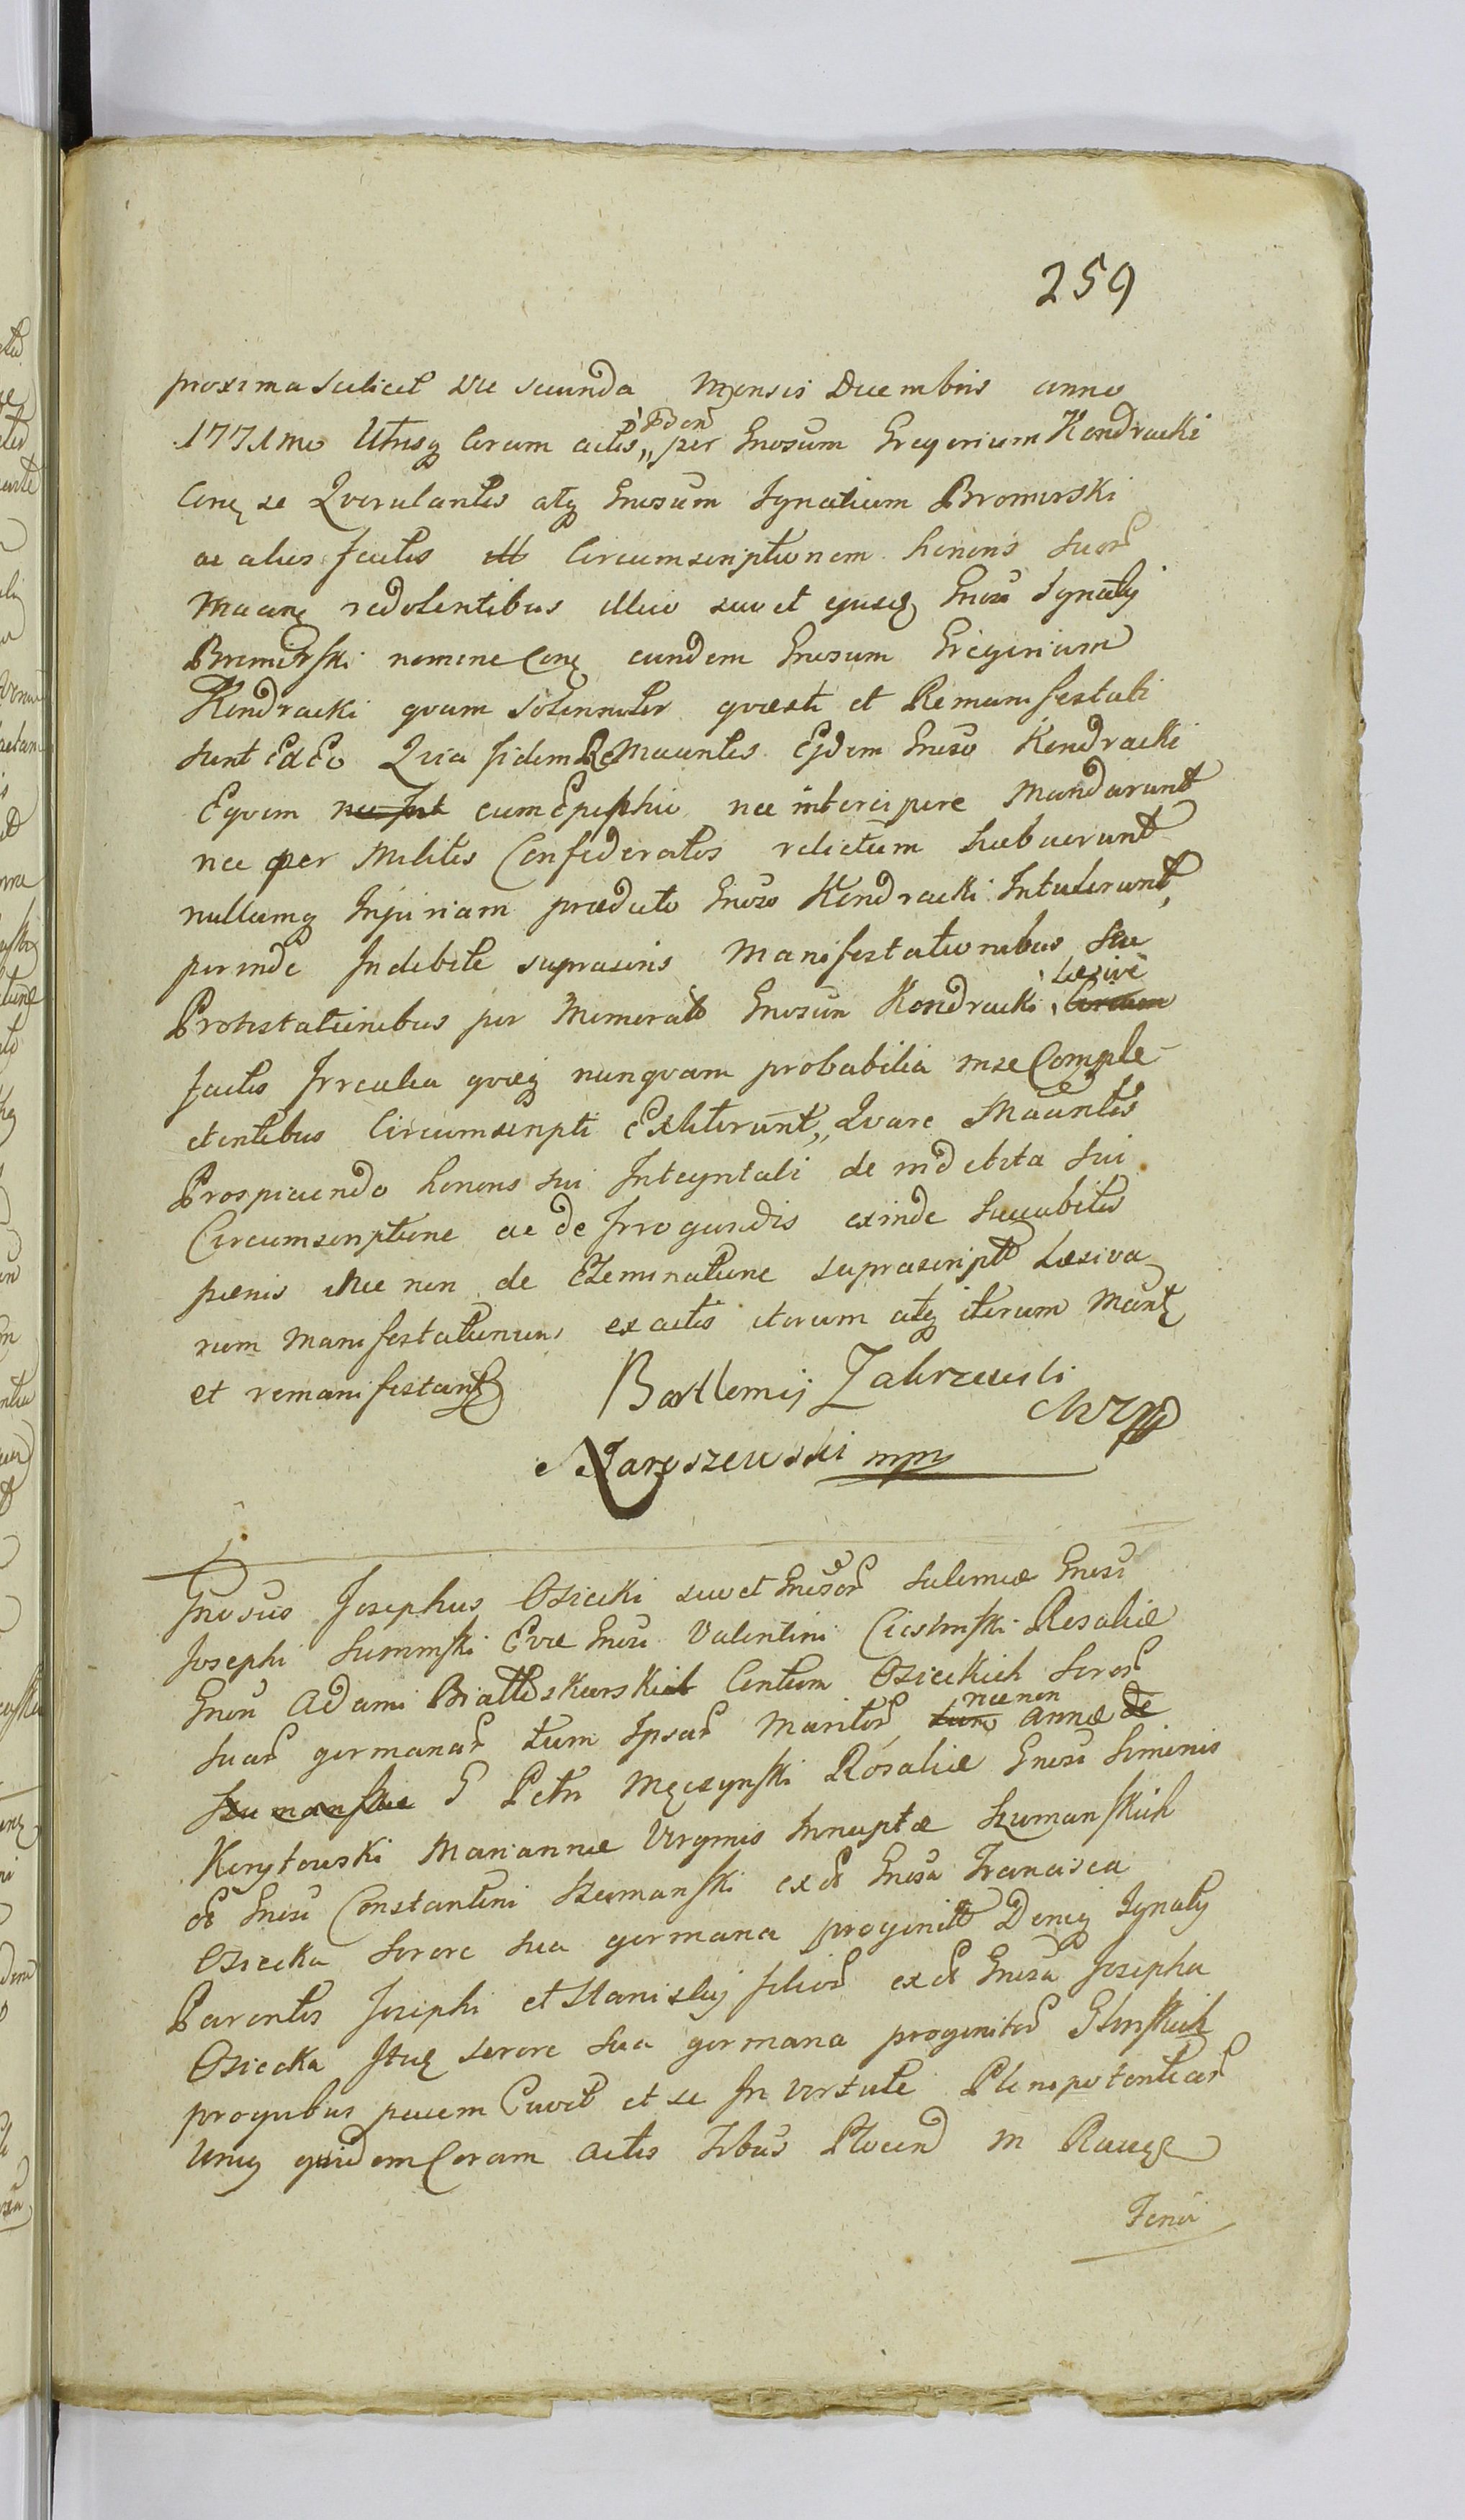 259
proxima scilicet die secunda Mensis Decembris anno
1771mo Utrisq Coram actis „ per Gnosum Gregorium Kendracki
Conq se Qverulantes atq Gnosum Ignatium Bromirski
ac alios factis Circumscriptionem honoris suor
redolentibus ideo suo et ejusdq Gnosi Ignatij
Bromirski nomine Conq eundem Gnosum Gregorium
Kendracki qvam Solenniter qvaesti et Remanifestati
sunt Ex Eo Qvia fidem ReMaantes Ejdem Gnoso Kendracki
Eqvum nec Int cum Epiphio nec intercipere Mandarunt
nec per Milites Confederatos relictum habuerunt
nullamq Injuriam praedicto Gnoso Kendracki Intulerunt,
perinde Indebite suprascris Manifestationibus seu
Laesive
Protestationibus per Memorato Gnosum Kendracki
factis Irrealia qvaeq nunqvam probabilia in se Comple-
ctentibus Circumscripti Extiterunt„ Qvare Maantes
Prospiciendo honoris sui Integritati de indebita sui
Circumscriptione ac de Irrogandis exinde Succubitis
paenis nec non de Eliminatione suprascript Laesiva-
rum Manifestationum ex actis iterum atq iterum Mant
et remanifestant Bartlemij Zakrzewski
Jaroszewski mpp
Gnosus Josephus Osiecki suo et Gnosor Salomeae Gnosi
Josephi Suminski Evae Gnosi Valentini Ciesinski Rosaliae
Gnosi Adami Białłoskurski Contium Osieckich Soror
suar germanar tum Ipsar Maritor tum necnon Annae de
Szumanskie G Petri Męczynski Rosaliae Gnosi Simonis
Korytowski Mariannae Virginis Innuptae Szumanskich
olt Gnosi Constantini Szumanski ex olt Gnosa Francisca
Osiecka Sorore sua germana progenit Deniq Ignatij
Parentis Josephi et Stanislaj filior ex olt Gnosa Josepha
Osiecka Itidq sorore sua germana progenitor Glinskich
pro qvibus pacem Cavet et se In virtute Plenipotentiar
Unius quidem Coram actis Tribus Plocend in Raciąż
Feria